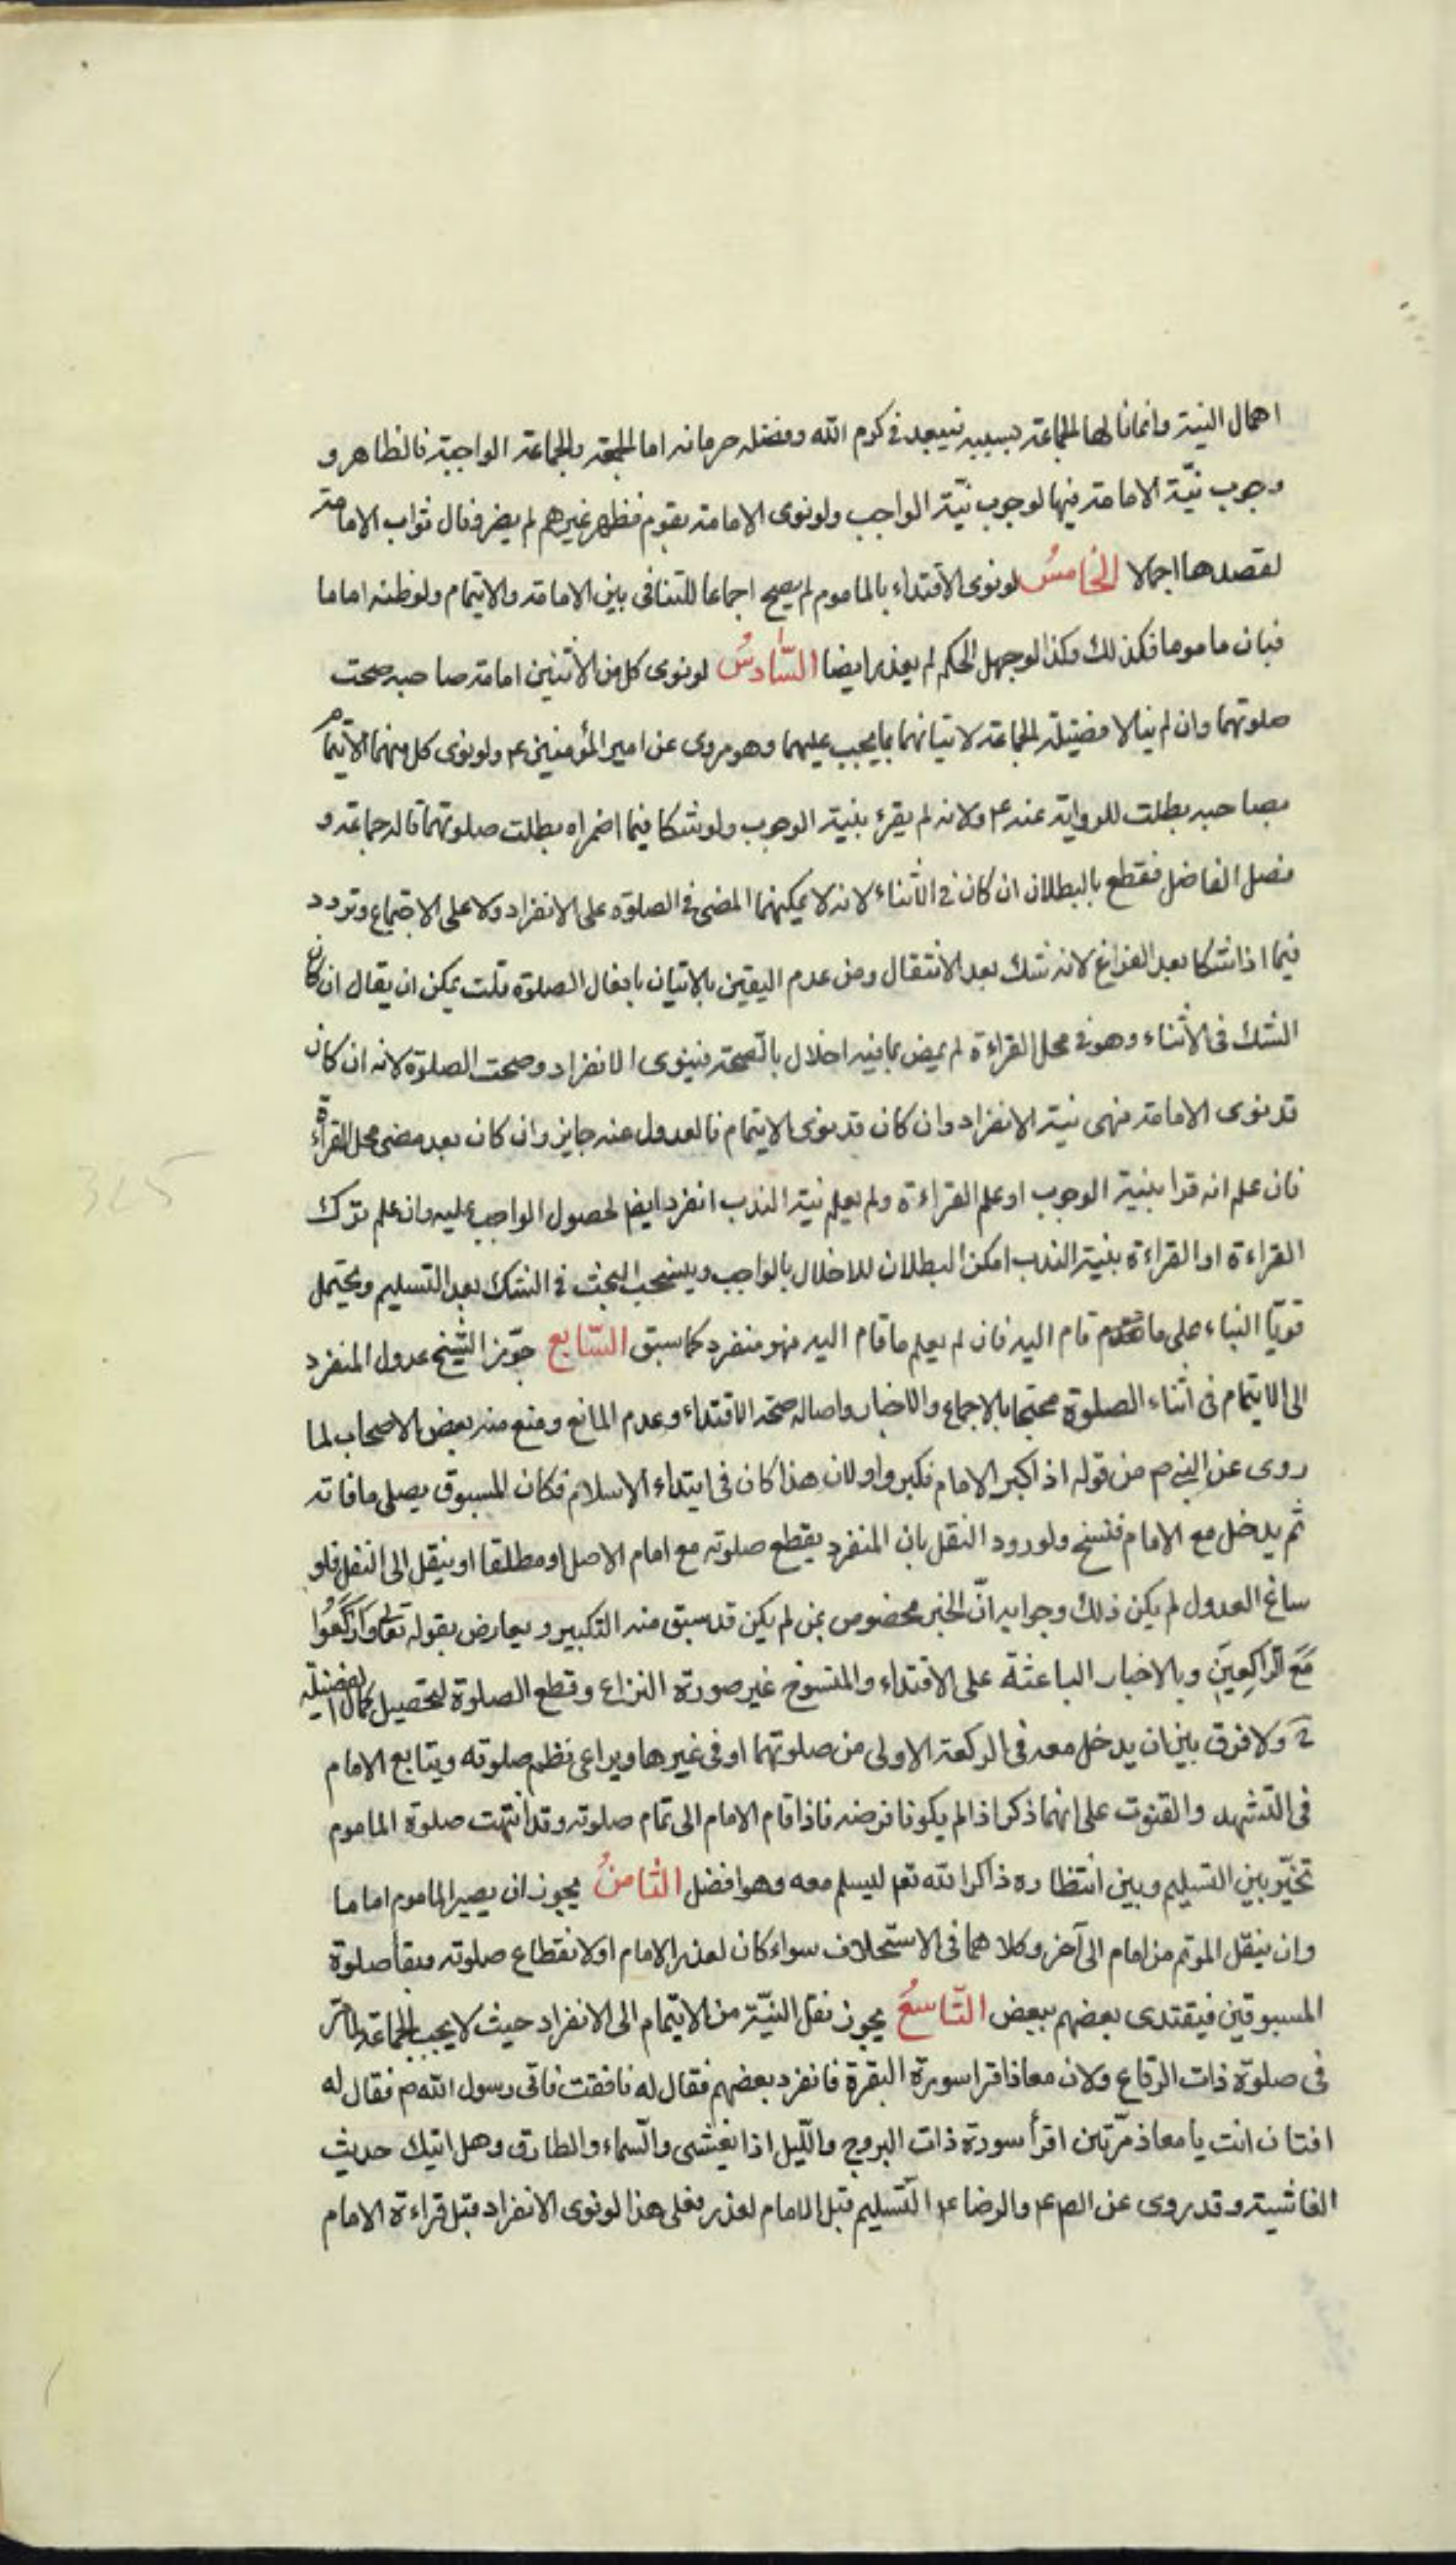 اهمال النية وانما نالها الجماعة بسببه فيبعد في كرم الله وفضله حرمانه اما الجمعة والجماعة الواجبة فالظاهر و
وجوب نيّة الامامة فيها لوجوب نيّة الواجب ولو نوى الامامة بقوم فظهر غيرهم لم يضر ونال ثواب الامامة
لقصدها اجمالا الخامسُ لو نوى الاقتداء بالماموم لم يصح اجماعا للتنافى بين الامامة والايتمام ولو ظنه اماما
فبان ماموما فكذلك وكذا لو جهل الحكم لم يعذر ايضا السّادسُ لو نوى كل من الاثنين امامة صاحبه صحت
صلوتهما وان لم ينالا فضيلة الجماعة لاتيانهما بما يجب عليهما وهو مروى عن امير المؤمنين ع ولو نوى كل منهما الايتمام
بصاحبه بطلت للرواية عنه ع ولانه لم يقرء بنية الوجوب ولو شكا فيما اضمراه بطلت صلوتهما قاله جماعة و
فصل الفاضل فقطع بالبطلان ان كان في الاثناء لانه لا يمكنهما المضى في الصلوة على الانفراد ولا على الاجتماع وتردد
فيما اذا شكا بعد الفراغ لانه شك بعد الانتقال ومن عدم اليقين بالاتيان بافعال الصلوة قلت يمكن ان يقال ان كان
الشك فى الأثناء وهو في محل القراءة لم يمض ما فيه اخلال بالصحة فينوى الانفراد وصحت الصلوة لانه ان كان
قد نوى الامامة فهى نية الانفراد وان كان قد نوى الايتمام فالعدول عنه جايز وان كان بعد مضى محل القراءة
فان علم انه قرا بنية الوجوب او علم القراءة ولم يعلم نية الندب انفرد ايضا لحصول الواجب عليه وان علم ترك
القراءة او القراءة بنية الندب امكن البطلان للاخلال بالواجب وينسحب البحث في الشك بعد التسليم ويحتمل
قويّا البناء على ما تقدم قام اليه فان لم يعلم ما قام اليه فهو منفرد كما سبق السّابع جوّز الشيخ عدول المنفرد
الى الايتمام فى اثناء الصلوة محتجا بالاجماع والاخبار واصالة صحة الاقتداء وعدم المانع ومنع منه بعض الاصحاب لما
روى عن النبي ص من قوله اذا كبر الامام فكبروا ولان هذا كان فى ابتداء الاسلام فكان المسبوق يصلى ما فاته
ثم يدخل مع الامام فنسخ ولورود النقل بان المنفرد يقطع صلوته مع امام الاصل او مطلقا او ينقل الى النفل فلو
ساغ العدول لم يكن ذلك وجوابه انّ الخبر مخصوص بمن لم يكن قد سبق منه التكبير ويعارض بقوله تعالى وَارْكَعُوا
مَعَ الرّاكِعِينَ وبالاخبار الباعثة على الاقتداء والمنسوخ غير صورة النزاع وقطع الصلوة لتحصيل كمال الفضيلة
ولا فرق بين ان يدخل معه فى الركعة الاولى من صلوتهما او فى غيرها ويراعى نظم صلوته ويتابع الامام
فى التشهد والقنوت على انهما ذكر اذا لم يكونا فرضه فاذا قام الامام الى تمام صلوته وقد انتهت صلوة الماموم
تخيّر بين التسليم وبين انتظاره ذاكرا لله تعم ليسلم معه وهو افضل الثّامنُ يجوز ان يصير الماموم اماما
وان ينقل الموتم من امام الى آخر وكلاهما فى الاستخلاف سواء كان لعذر الامام او لانقطاع صلوته وبقا صلوة
المسبوقين فيقتدى بعضهم ببعض التّاسعُ يجوز نقل النيّة من الايتمام الى الانفراد حيث لا يجب الجماعة لما مر
فى صلوة ذات الرقاع ولان معاذا قرا سورة البقرة فانفرد بعضهم فقال له نافقت فاتى رسول الله ص فقال له
افتان انت يا معاذ مرّتين اقرأ سورة ذات البروج والّليل اذا يغشى والسّماء والطارق وهل اتيك حديث
الغاشية وقد روى عن الصـ ع والرضا ع التّسليم قبل الامام لعذر فعلى هذا لو نوى الانفراد قبل قراءة الامام
325